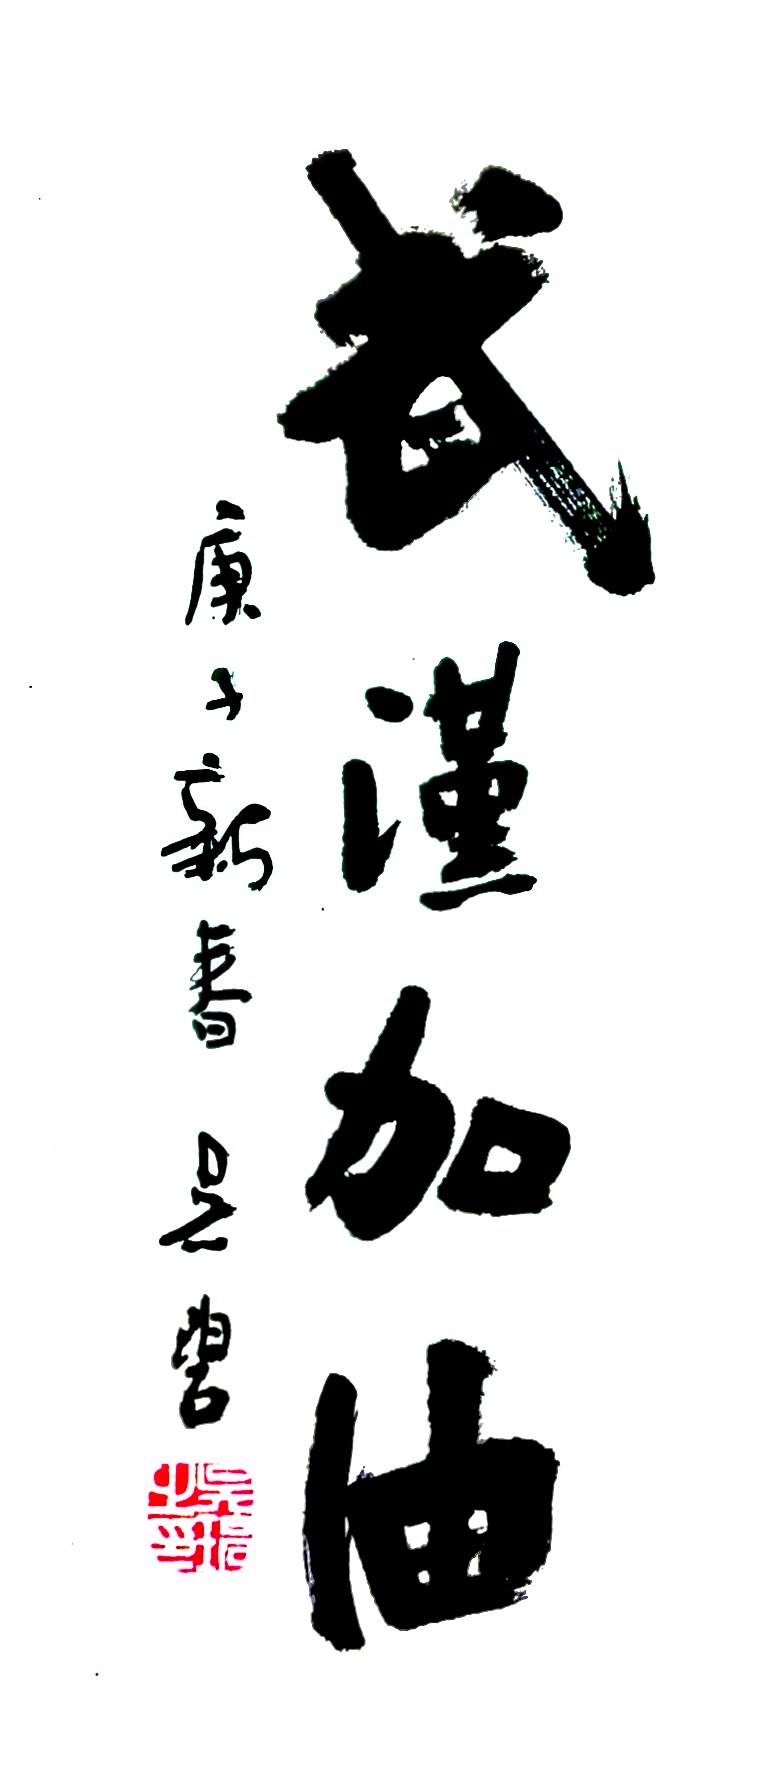 武漢加油
庚子新春 吴碧